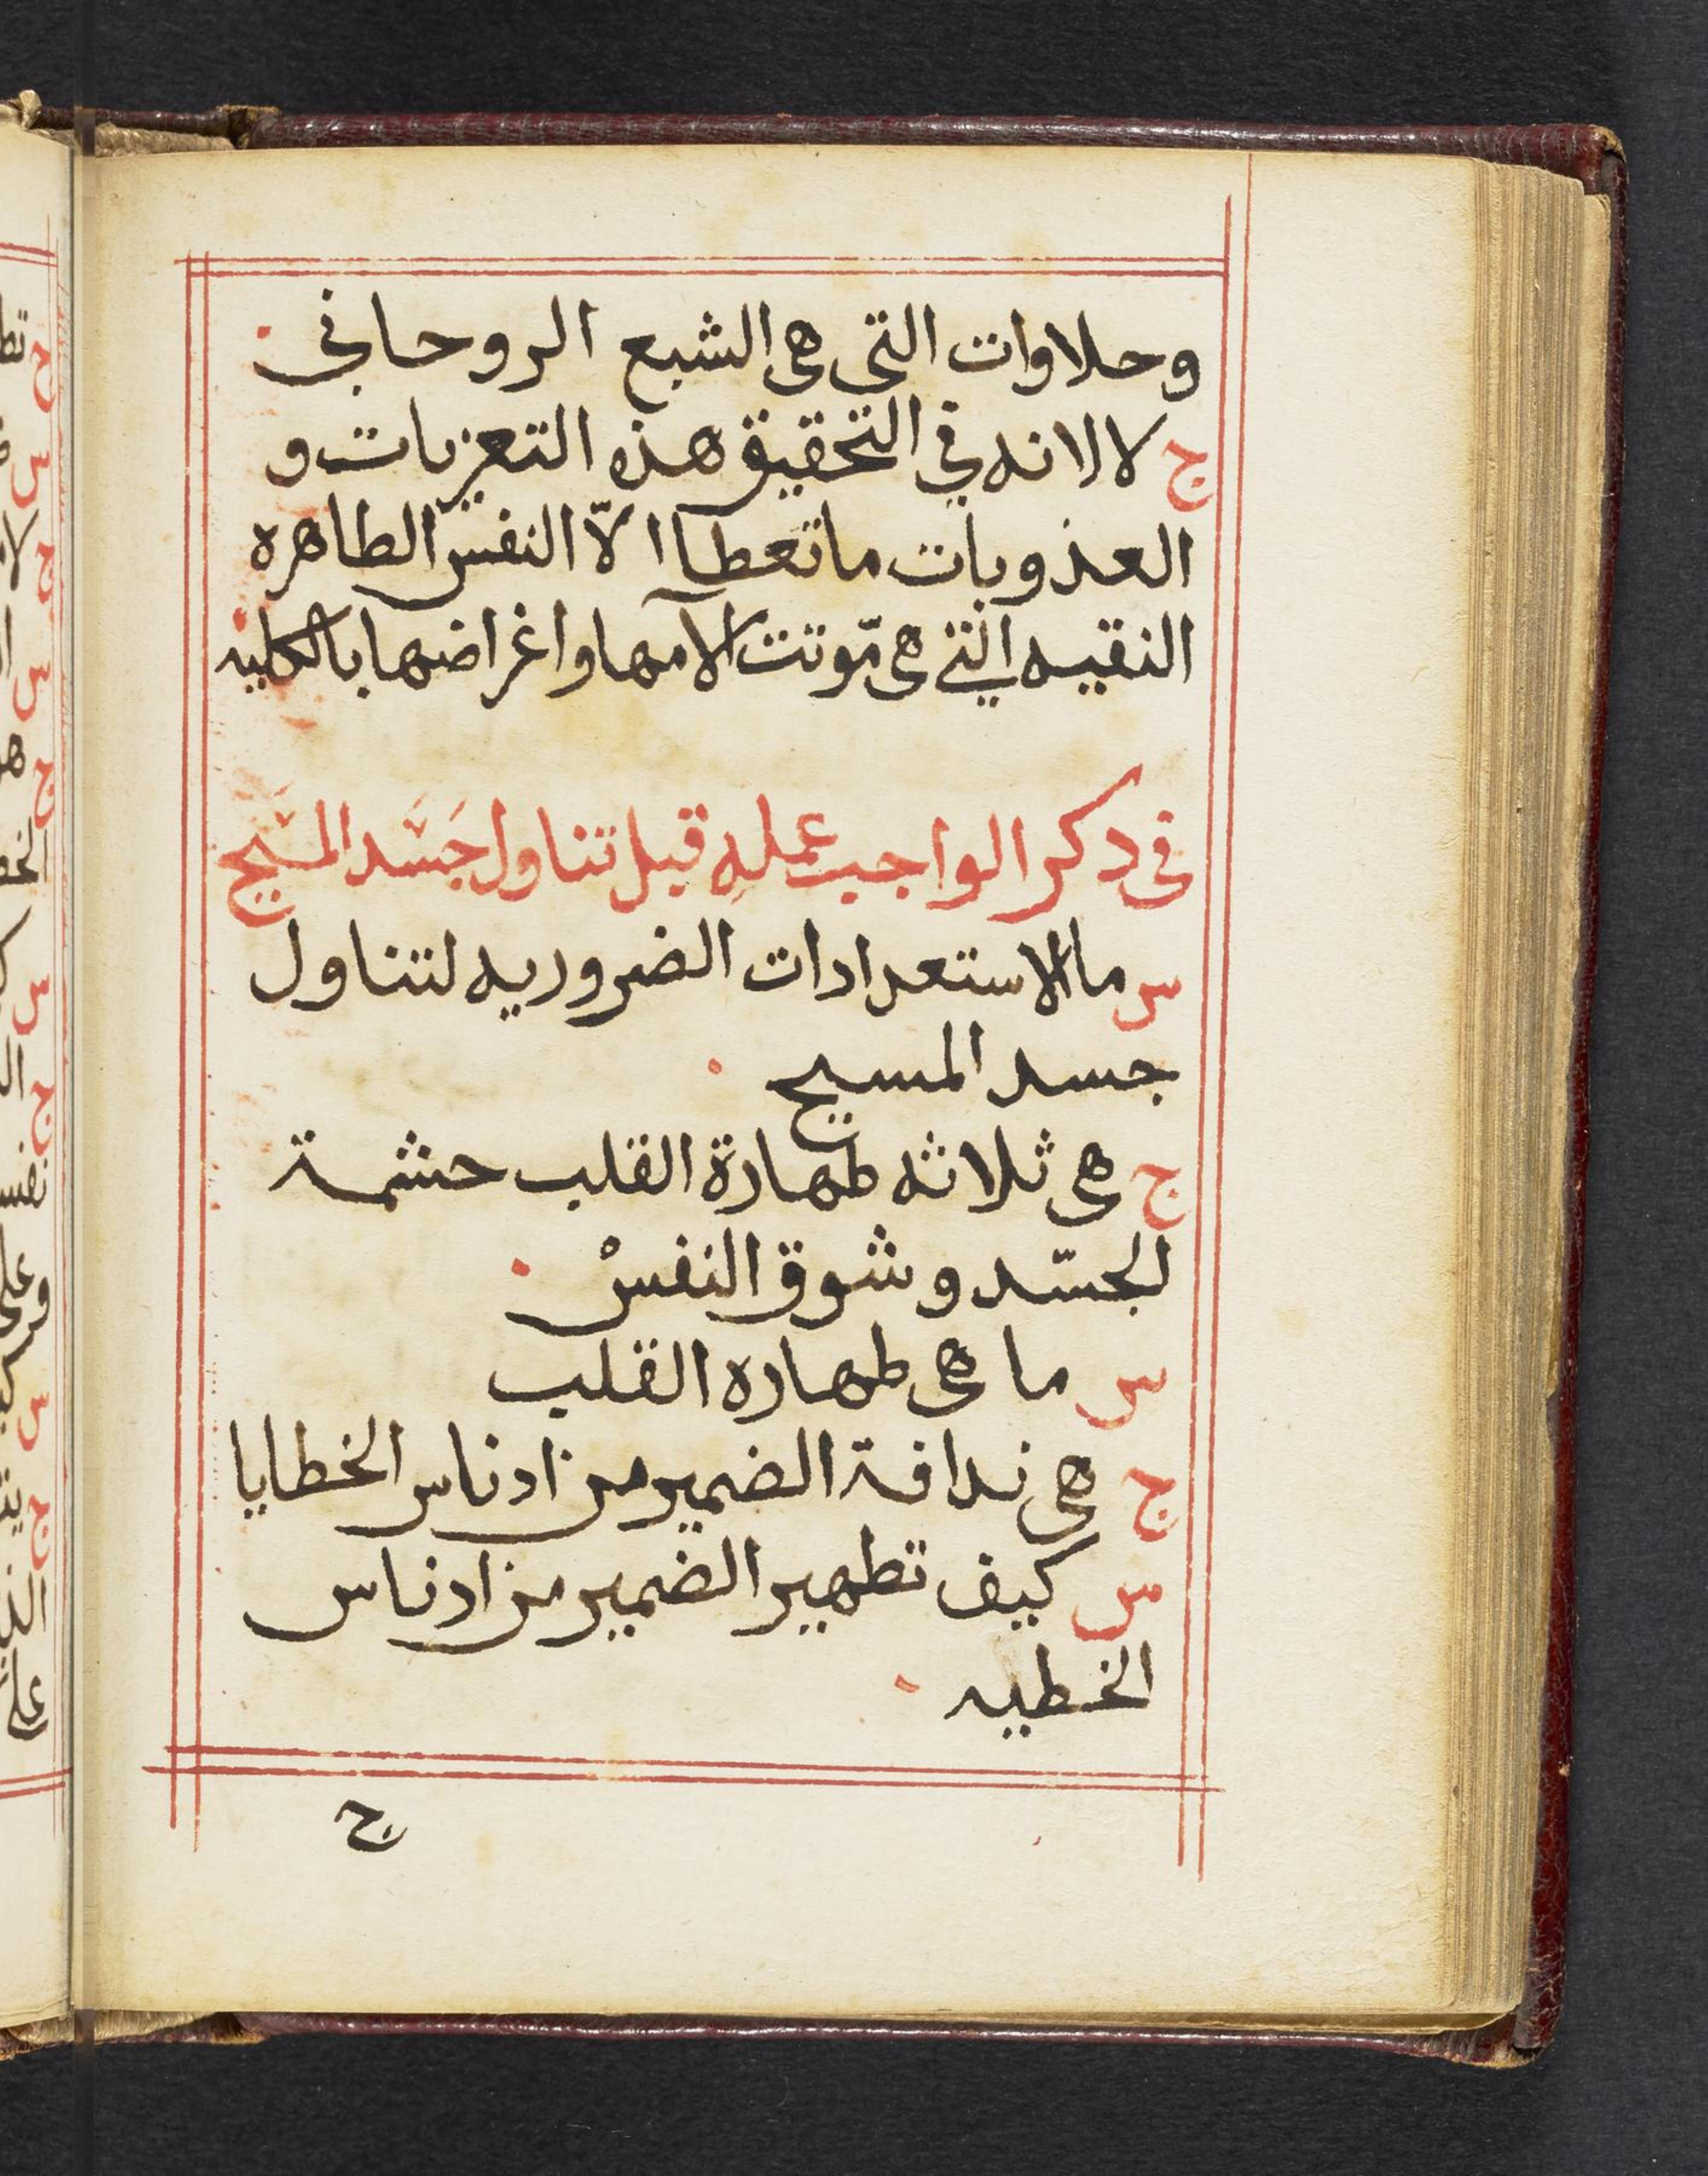 وحلاوات التى هى الشبع الروحاني
ج لا لانه في التحقيق هذه التعزيات و
العذوبات ما تعطا الّا النفس الطاهره
النقيه التي هى موّتت الآمها واغراضها بالكليه
فى ذكر الواجب عمله قبل تناول جَسَد المسَيح
س ما الاستعدادات الضروريه لتناول
جسد المسيح
ج هى ثلاثه طهارة القلب حشمة
الجسّد وشوق النفسْ
س ما هى طهاره القلب
ج هى ندافة الضمير من ادناس الخطايا
س كيف تطهير الضمير من ادناس
الخطيه
ج